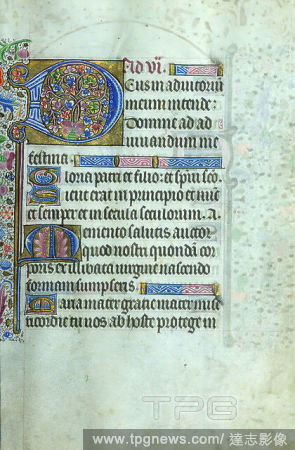 Ad vi.
Deus in adiutorium
meum intende:
Domine ad ad
iuuandum me
festina.
Gloria patri et filio: et spiri sco
Sicut erat in principio et nunc
et semper et in secula seculorum. a.
Memento salutis auctor
quod nostri quondā cor
poris ex illibata uirgine nascendo
formam sumpseris.
Maria mater gratie mater mise
ricordie tu nos ab hoste protege in
TPG
www.tpgnews.com / 達志影像